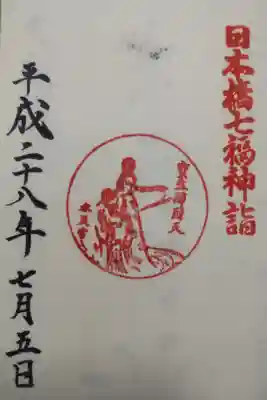 日本橋七福神詣
平成二十八年七月五日